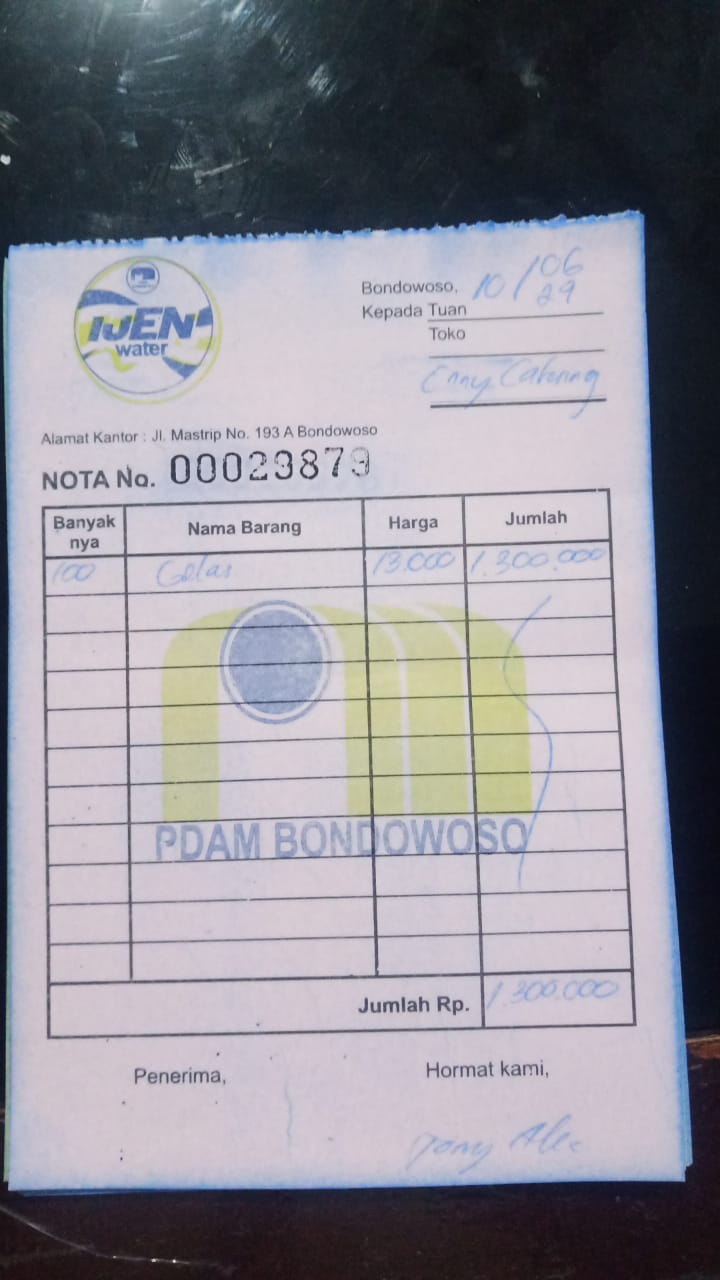 IJEN
water
Bondowoso, 10/06
Kepada Tuan
Toko
Enny Catering
Alamat Kantor : Jl. Mastrip No. 193 A Bondowoso
NOTA No. 00029879
Banyak nya Nama Barang Harga Jumlah
100 Gelas 13.000 1.300.000
PDAM BONDOWOSO
Jumlah Rp. 1.300.000
Penerima, Hormat kami,
Tomy